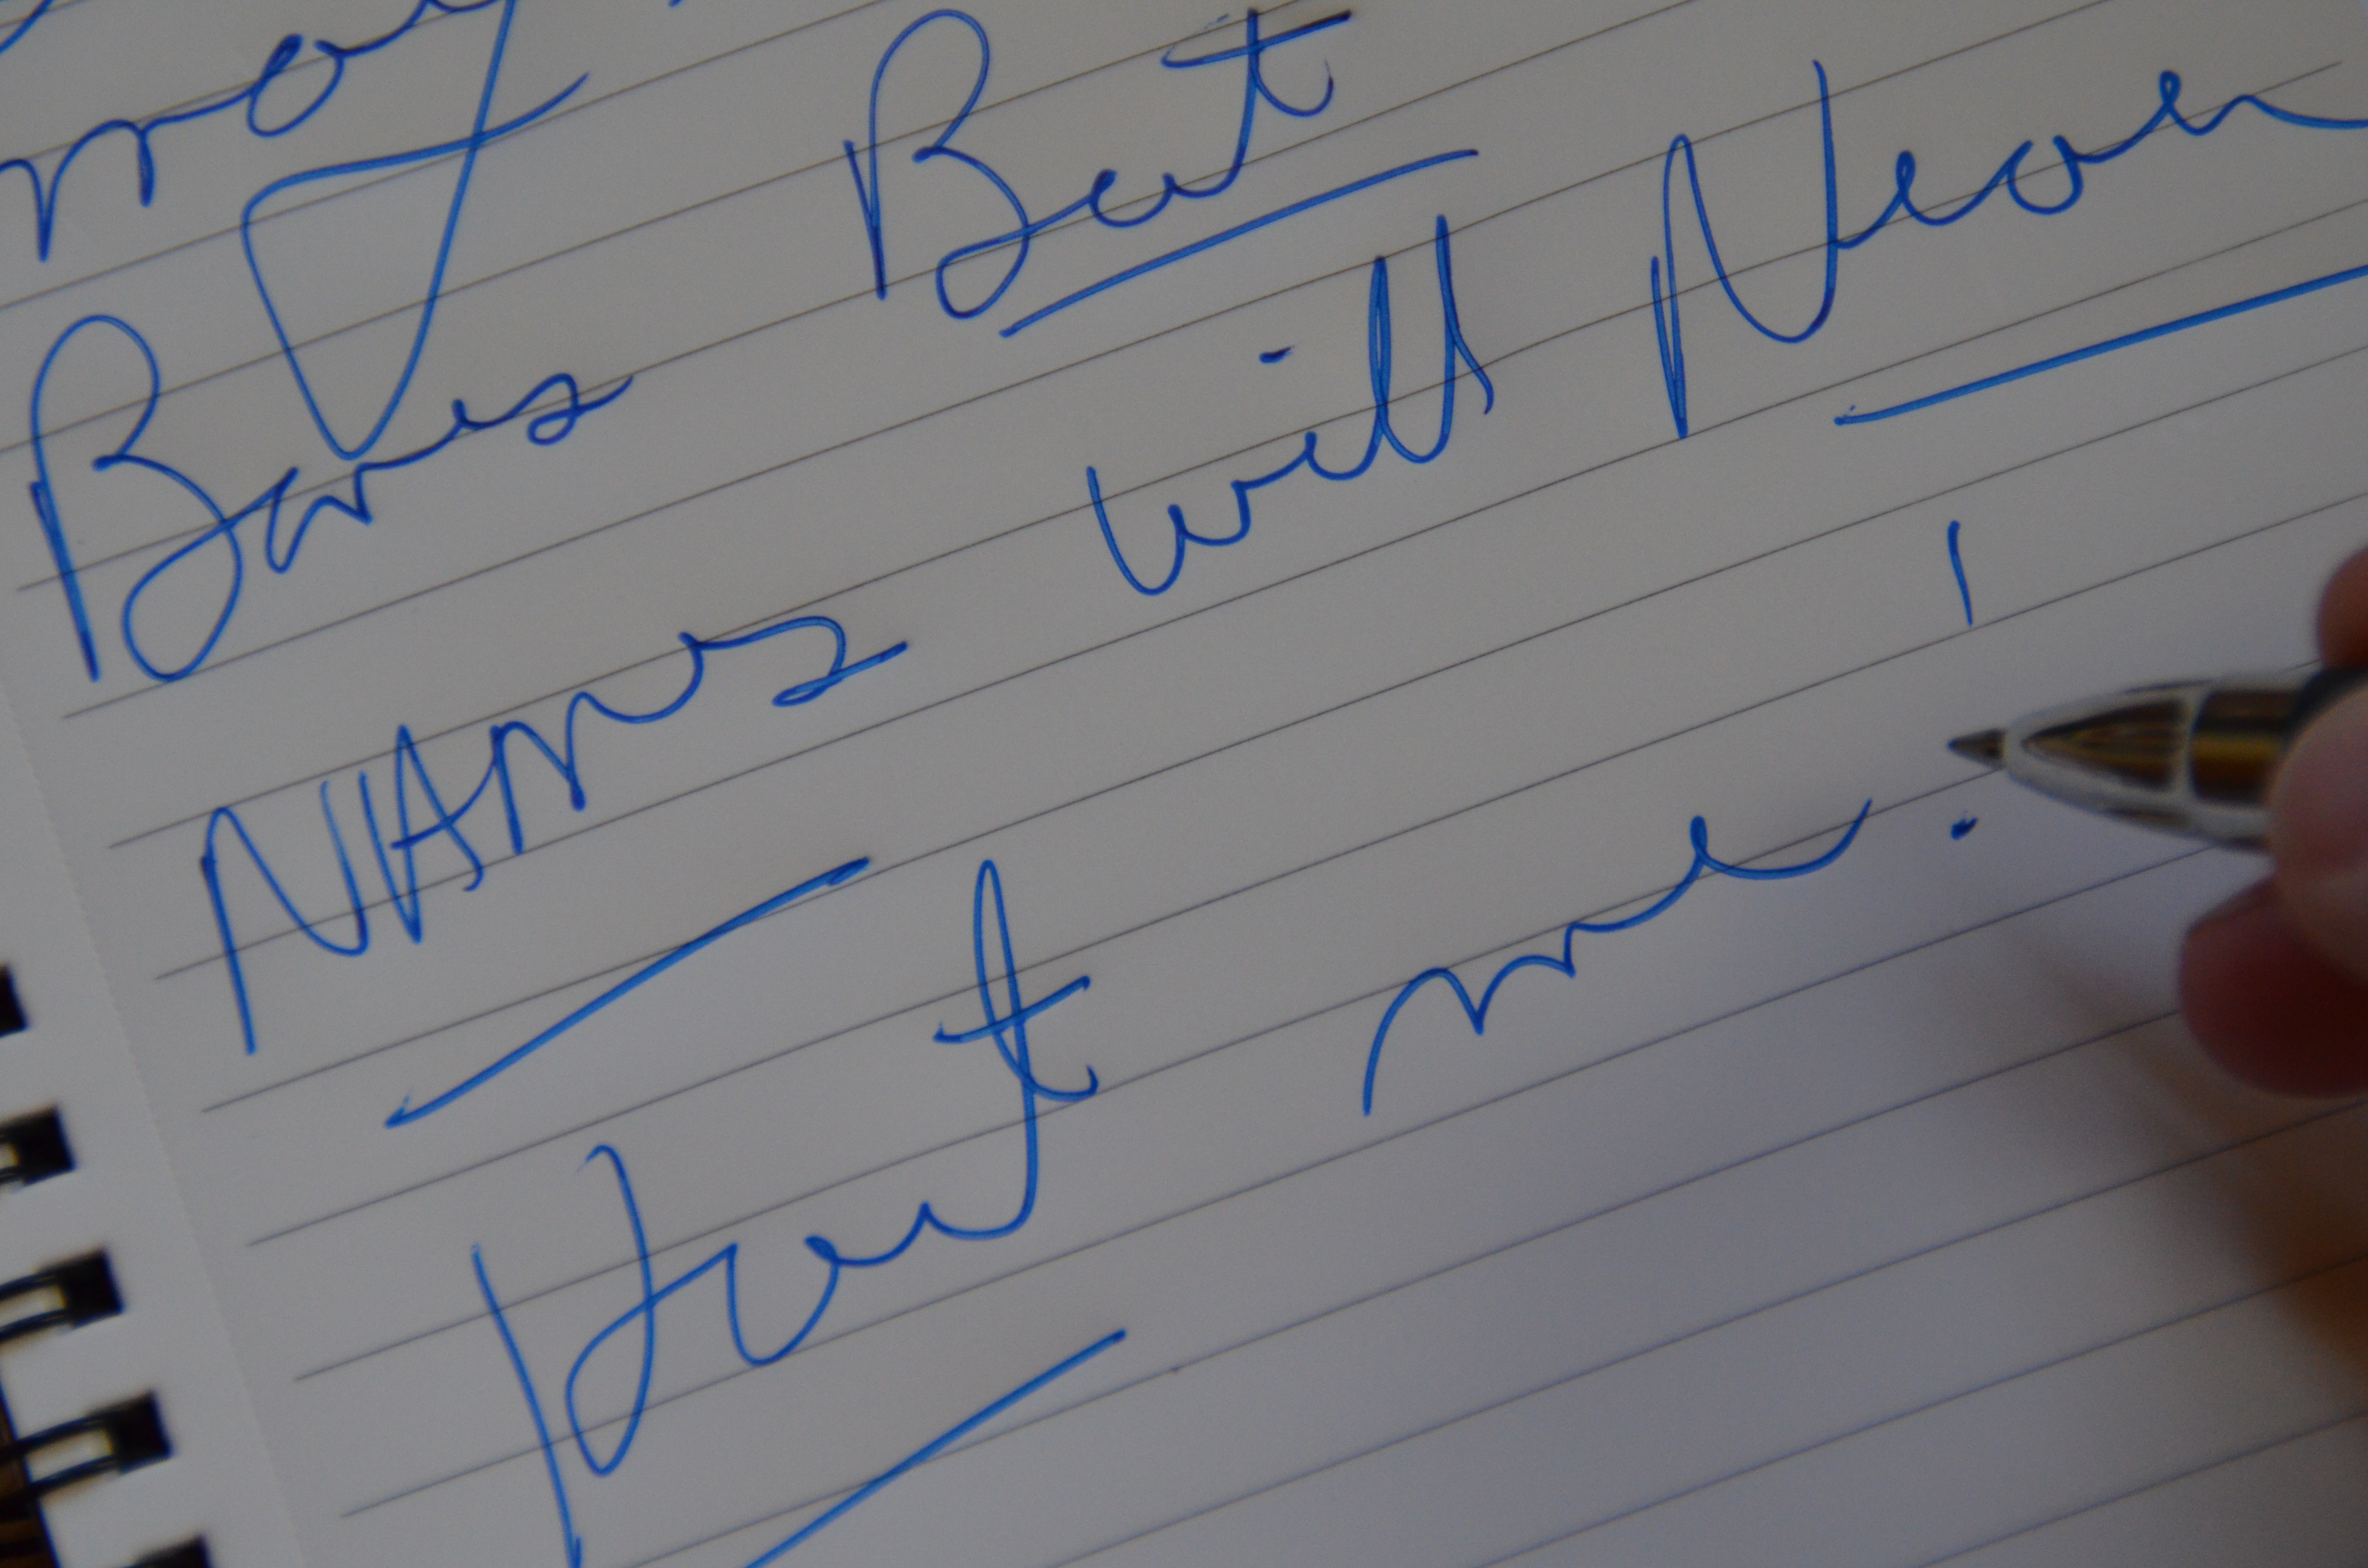 may
Bones But
NAMES will Never
Hurt me!